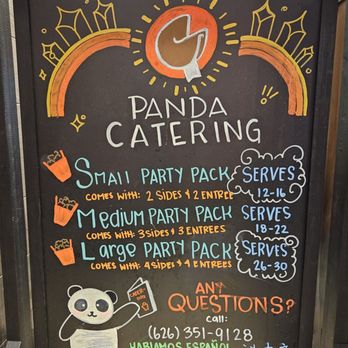 PANDA
CATERING
Small PARTY PACK SERVES
COMES WITH: 2 SIDES & 2 ENTREE 12-16
Medium PARTY PACK SERVES
COMES WITH: 3 SIDES & 3 ENTREES 18-22
Large PARTY PACK SERVES
COMES WITH: 4 SIDES & 4 ENTREES 26-30
ANY
QUESTIONS?
call:
(626) 351-9128
HABLAMOS ESPAÑOL